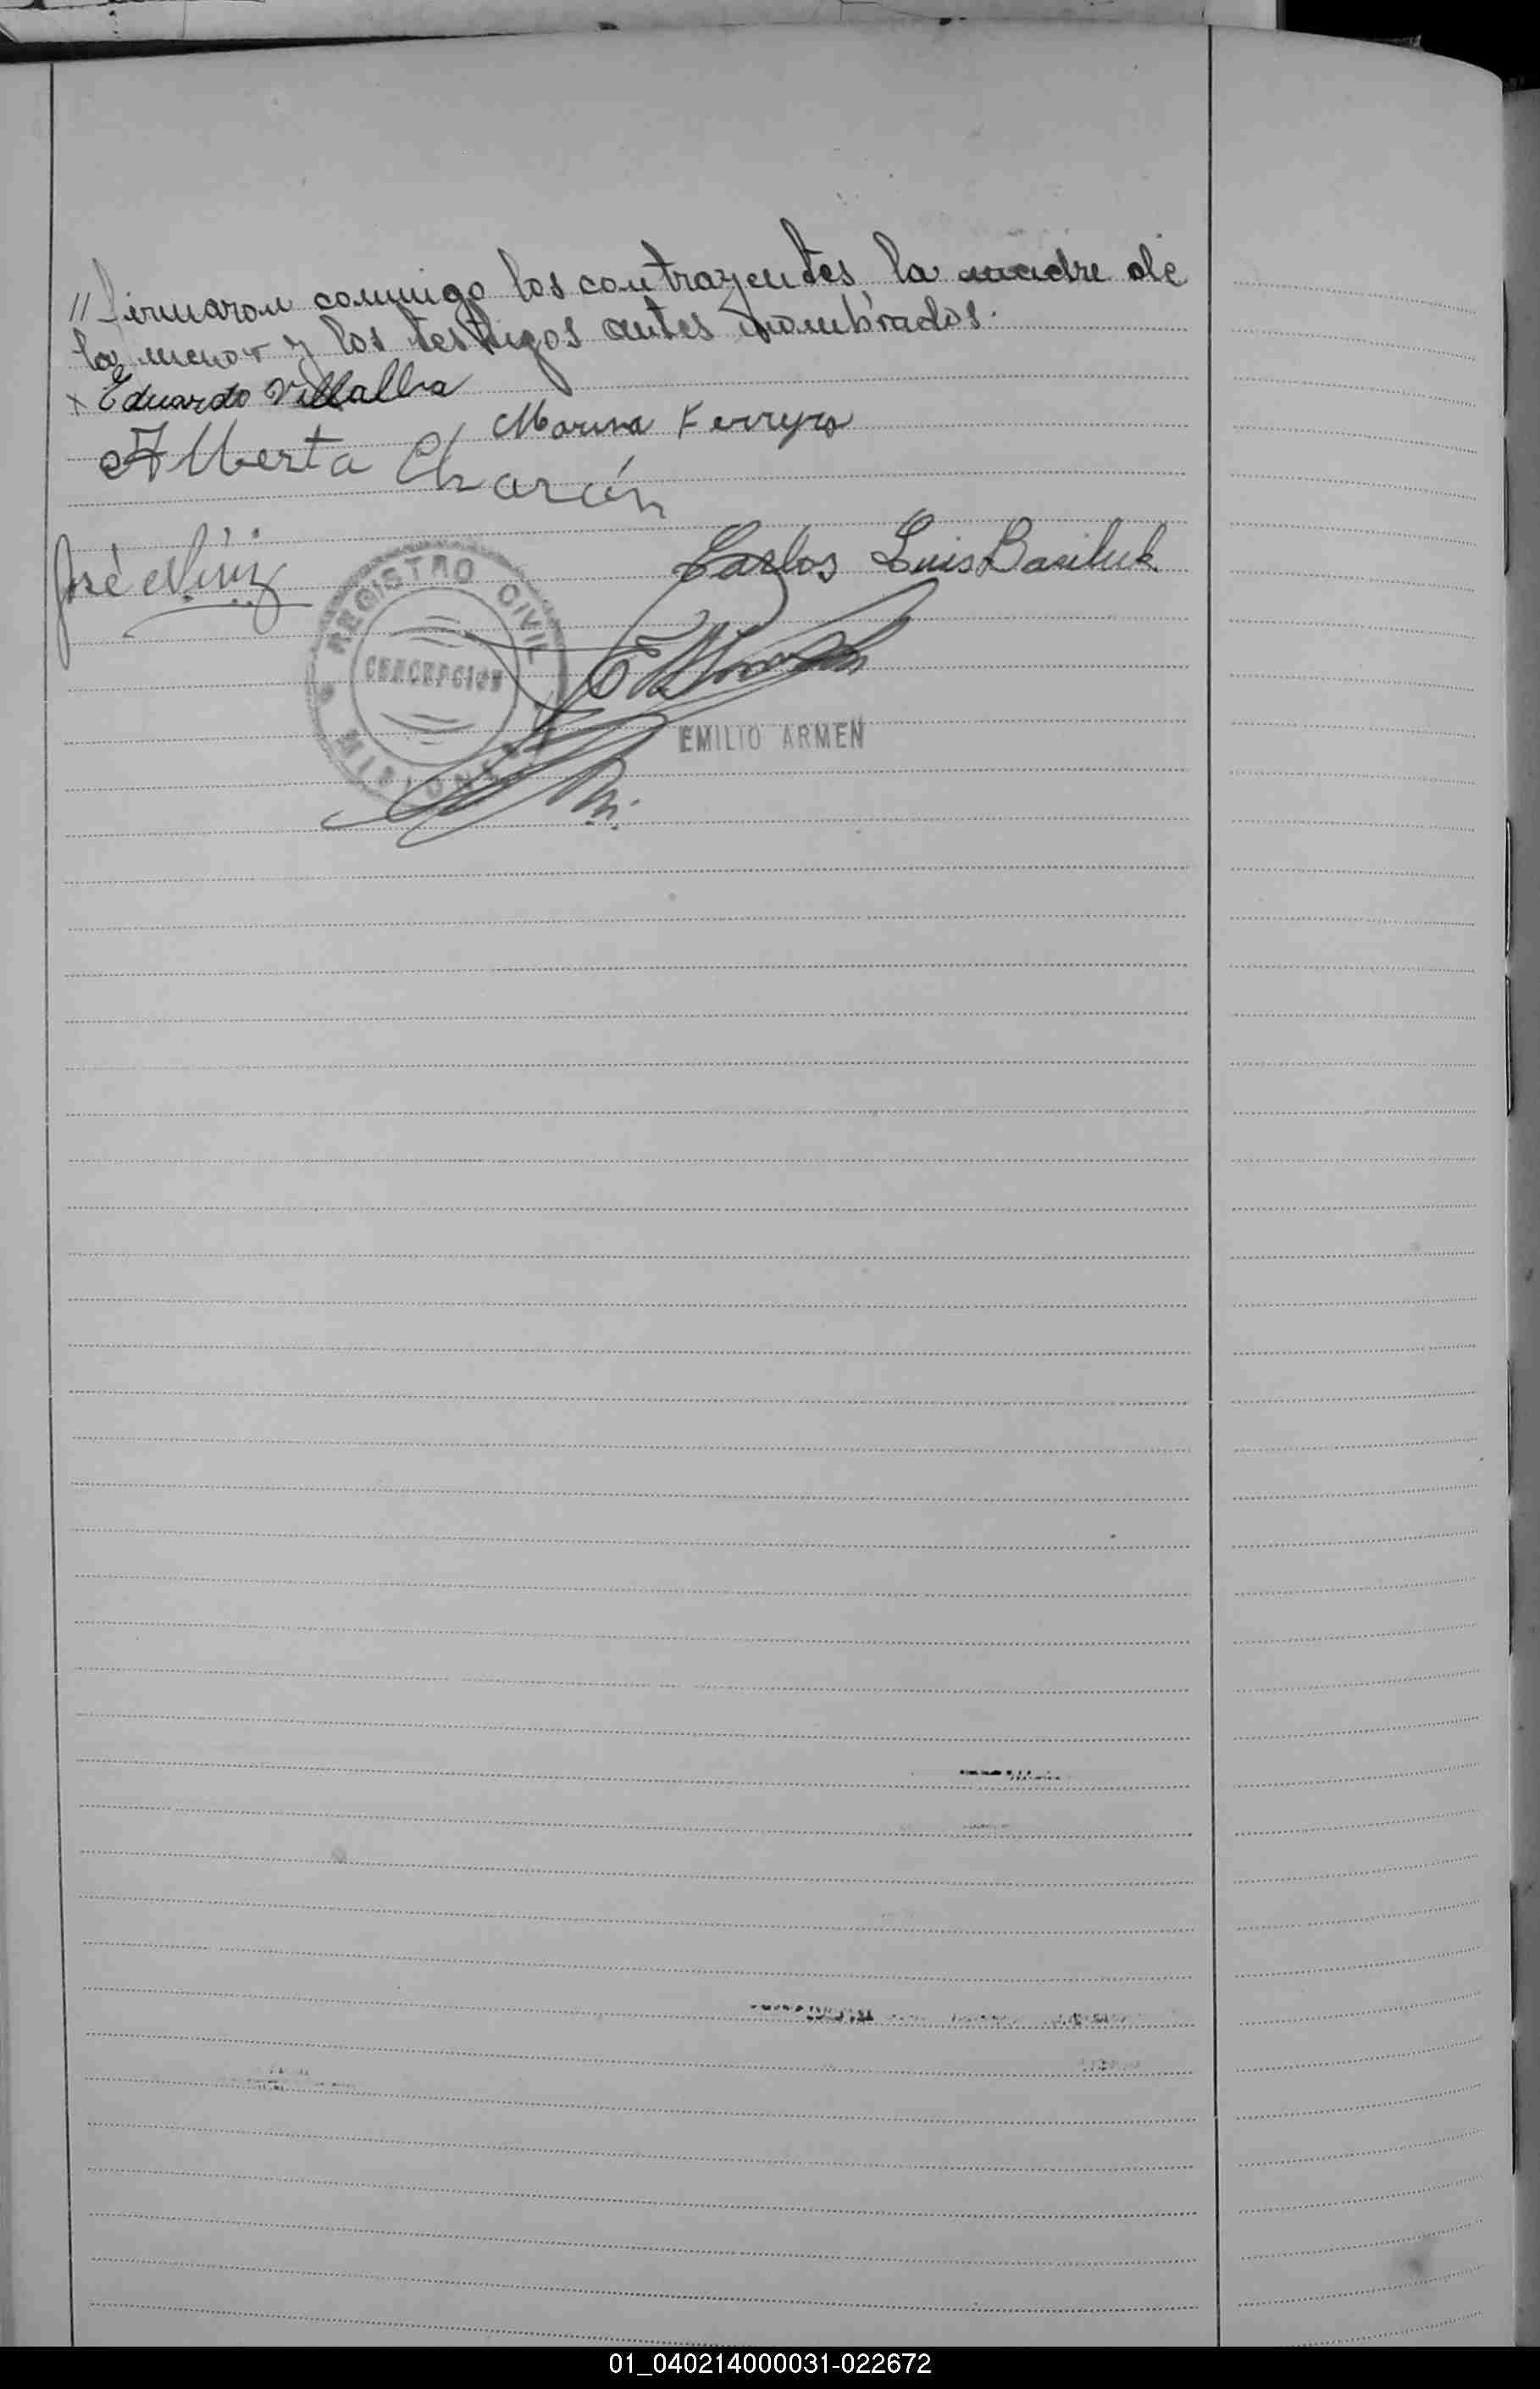 // firmaron conmigo los contrayentes la madre de
la menor y los testigos antes nombrados.
x Eduardo Villalba
Marina Ferreyra
Alberta Charán
José
Carlos Luis Basiluk
REGISTRO CIVIL
CONCEPCION
MISIONES
EMILIO ARMEN
01_040214000031-022672